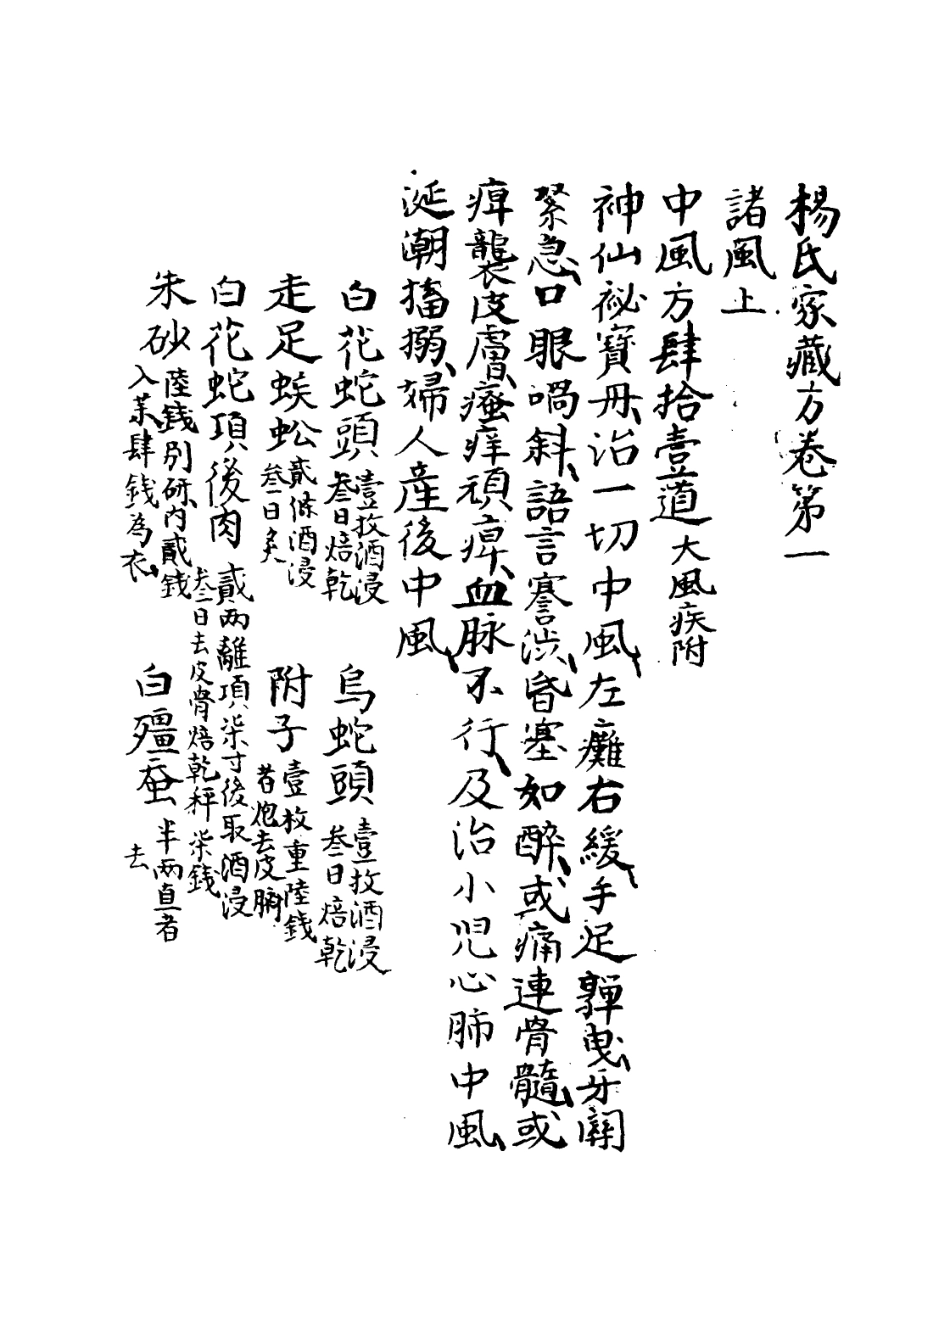 楊氏家藏方卷第一
諸風上
中風方肆拾壹道大風疾附
神仙祕寶丹、治一切中風、左癱右緩、手足軃曳、牙關
緊急、口眼喎斜、語言蹇澁、昏塞如醉、或痛連骨髓、或
痺襲皮膚、瘙痒頑痺、血脉不行、及治小児心肺中風、
涎潮搐搦、婦人産後中風、
白花蛇頭 壹枚酒浸叁日焙乾 烏蛇頭 壹枚酒浸叁日焙乾
走足蜈蚣 貳條酒浸叁日 附子 壹枚重陸錢者炮去皮臍
白花蛇項後肉 貳两離項柒寸後取酒浸叁日去皮骨焙乾秤柒錢
朱砂 陸錢別研、内貳錢入藥肆錢為衣、 白殭蚕 半两直者去